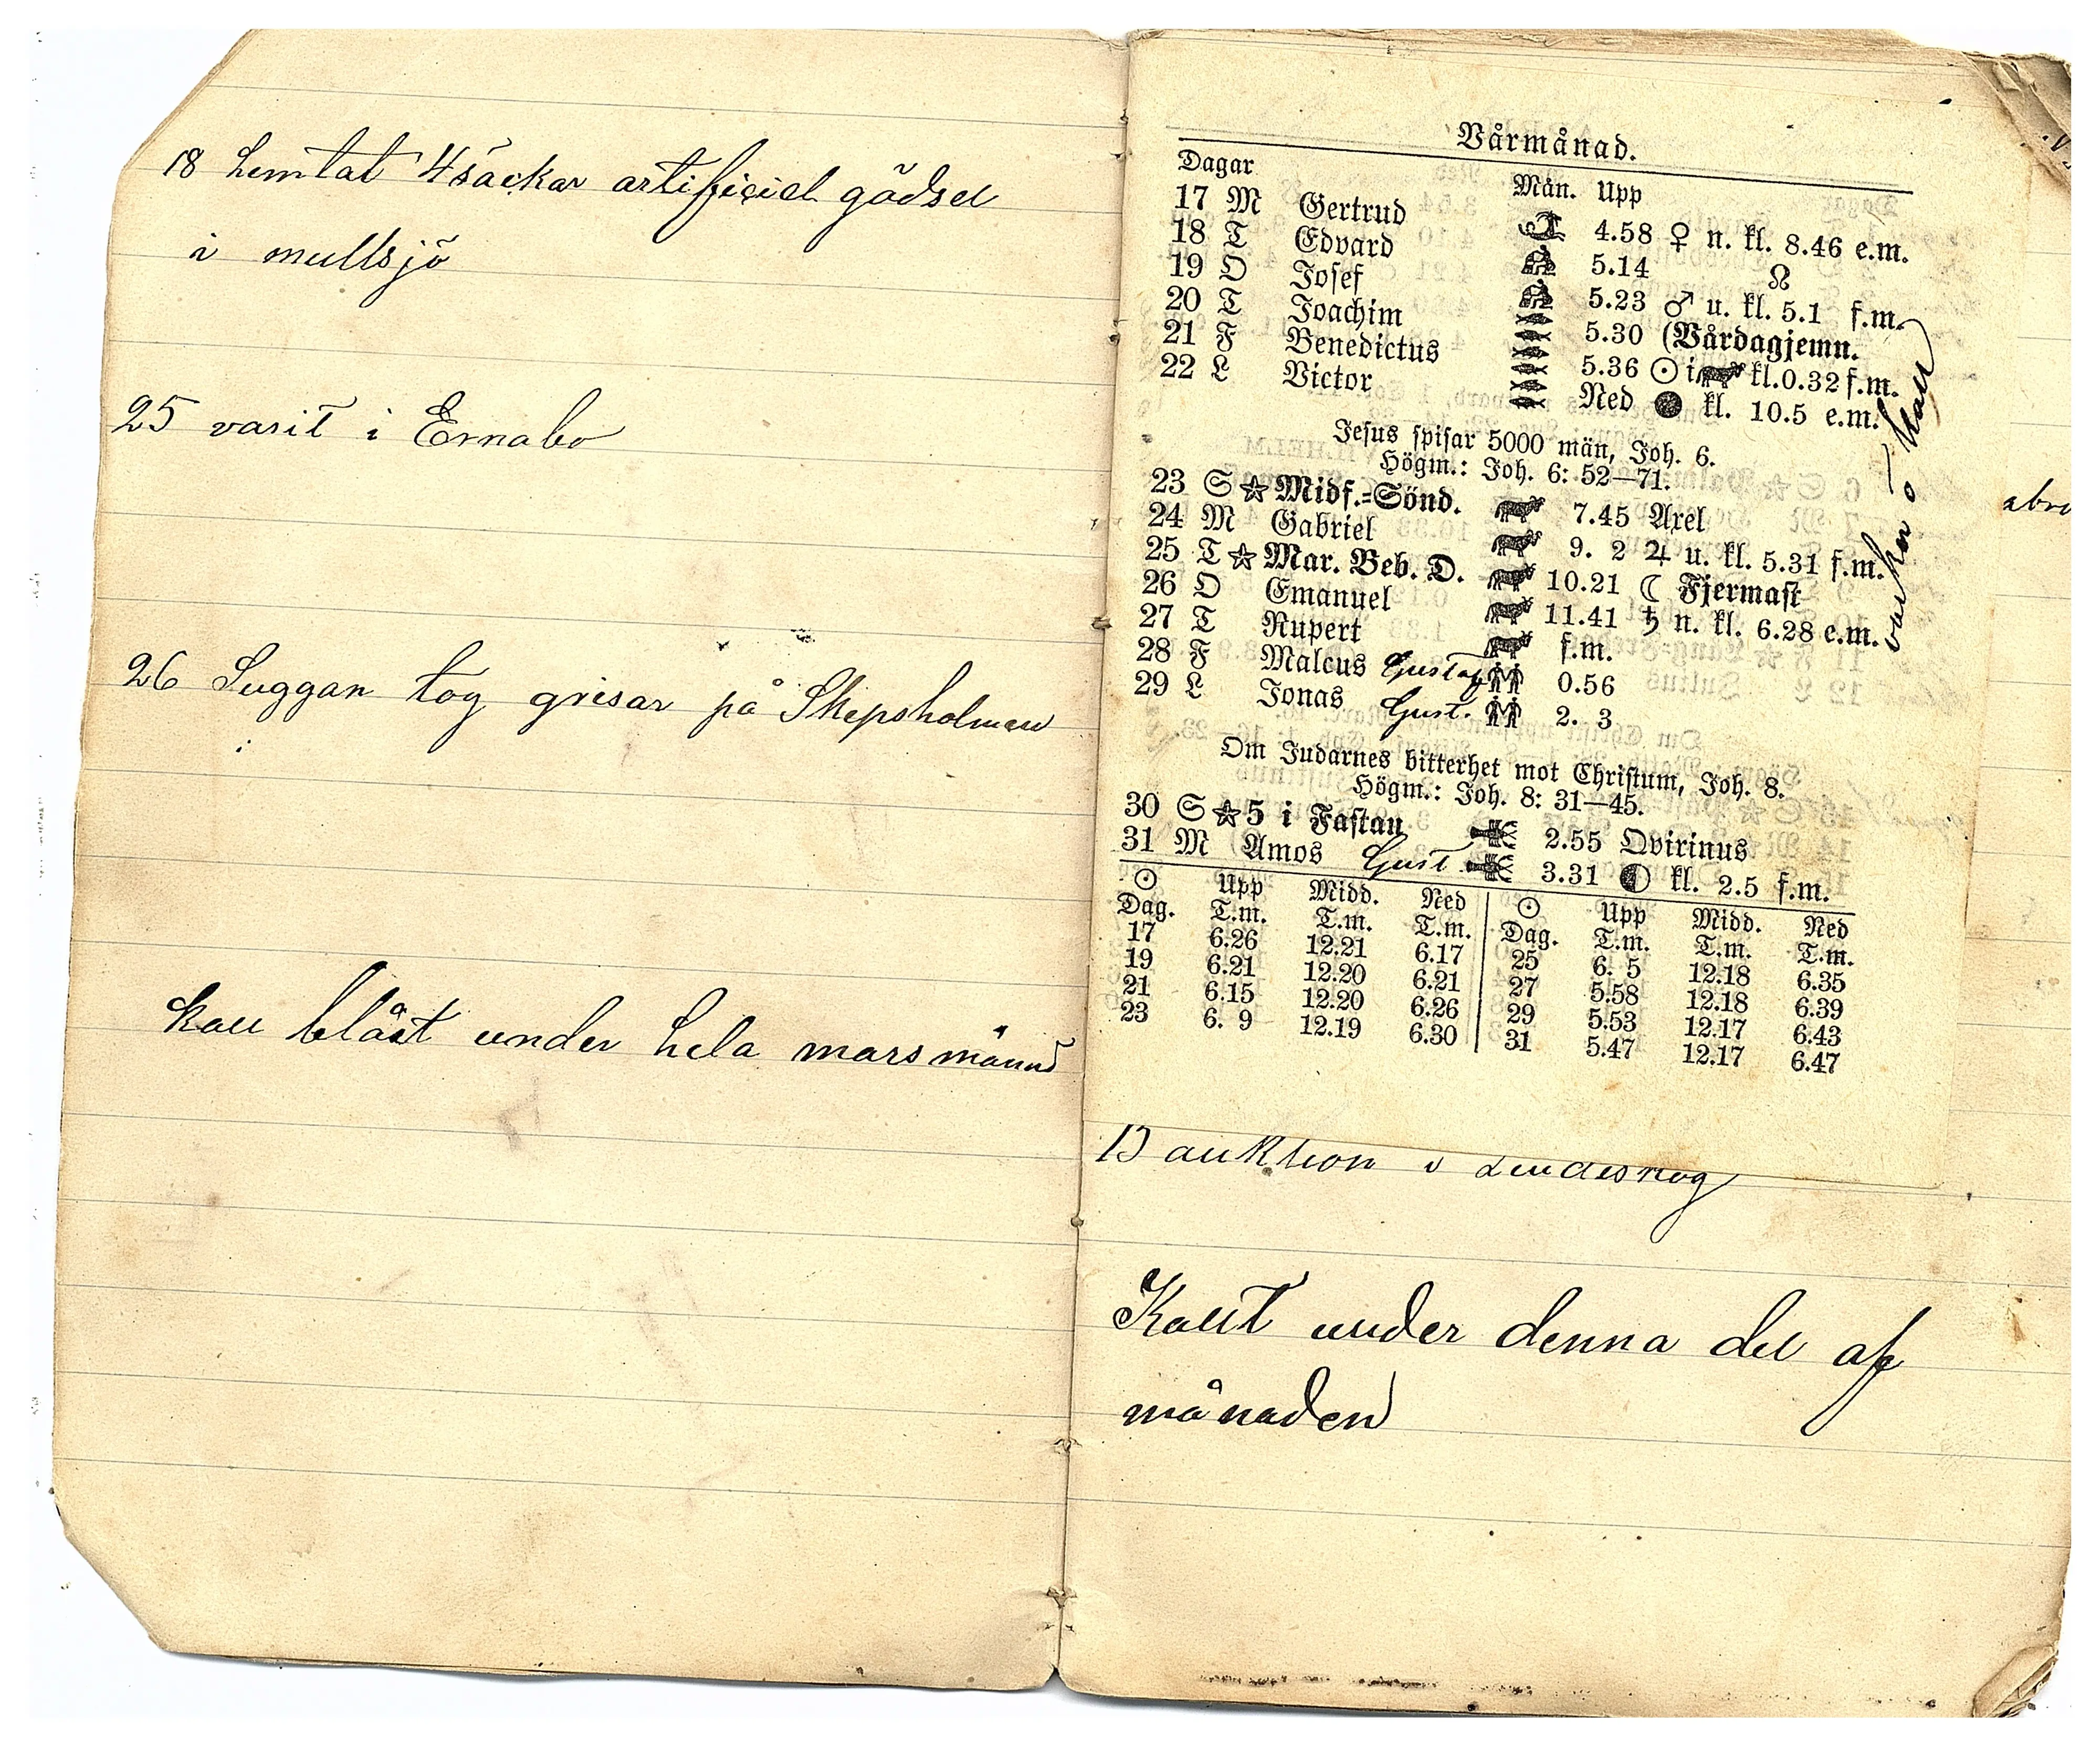 18 hemtat 4 säckar artificiel gödsel
i mullsjö
25 varit i Ernabo
26 Suggan tog grisar på Skepsholmen
kall blåst under hela mars månad
Vårmånad.
Dagar Mån. Upp
17 M Gertrud 4.58 ♀ n. kl. 8.46 e.m.
18 T Edvard 5.14 ☊
19 O Josef 5.23 ♂ u. kl. 5.1 f.m.
20 T Joachim 5.30 (Vårdagjemn.
21 F Benedictus 5.36 ☉ i kl. 0.32 f.m.
22 L Victor Ned ● kl. 10.5 e.m.
Jesus spisar 5000 män, Joh. 6.
Högm.: Joh. 6: 52—71.
23 S ☆ Midf.=Sönd. 7.45 Axel
24 M Gabriel 9. 2 ♃ u. kl. 5.31 f.m.
25 T ☆ Mar. Beb. D. 10.21 ☾ Fjermast
26 O Emanuel 11.41 ♄ n. kl. 6.28 e.m.
27 T Rupert f.m.
28 F Malcus Gustaf 0.56
29 L Jonas Gust. 2. 3
Om Judarnes bitterhet mot Christum, Joh. 8.
Högm.: Joh. 8: 31—45.
30 S ☆ 5 i Fastan 2.55 Qvirinus
31 M Amos Gust. 3.31 ◐ kl. 2.5 f.m.
☉ Upp Midd. Ned ☉ Upp Midd. Ned
Dag. T.m. T.m. T.m. Dag. T.m. T.m. T.m.
17 6.26 12.21 6.17 25 6. 5 12.18 6.35
19 6.21 12.20 6.21 27 5.58 12.18 6.39
21 6.15 12.20 6.26 29 5.53 12.17 6.43
23 6. 9 12.19 6.30 31 5.47 12.17 6.47
auktion i
Kallt under denna del af
månaden